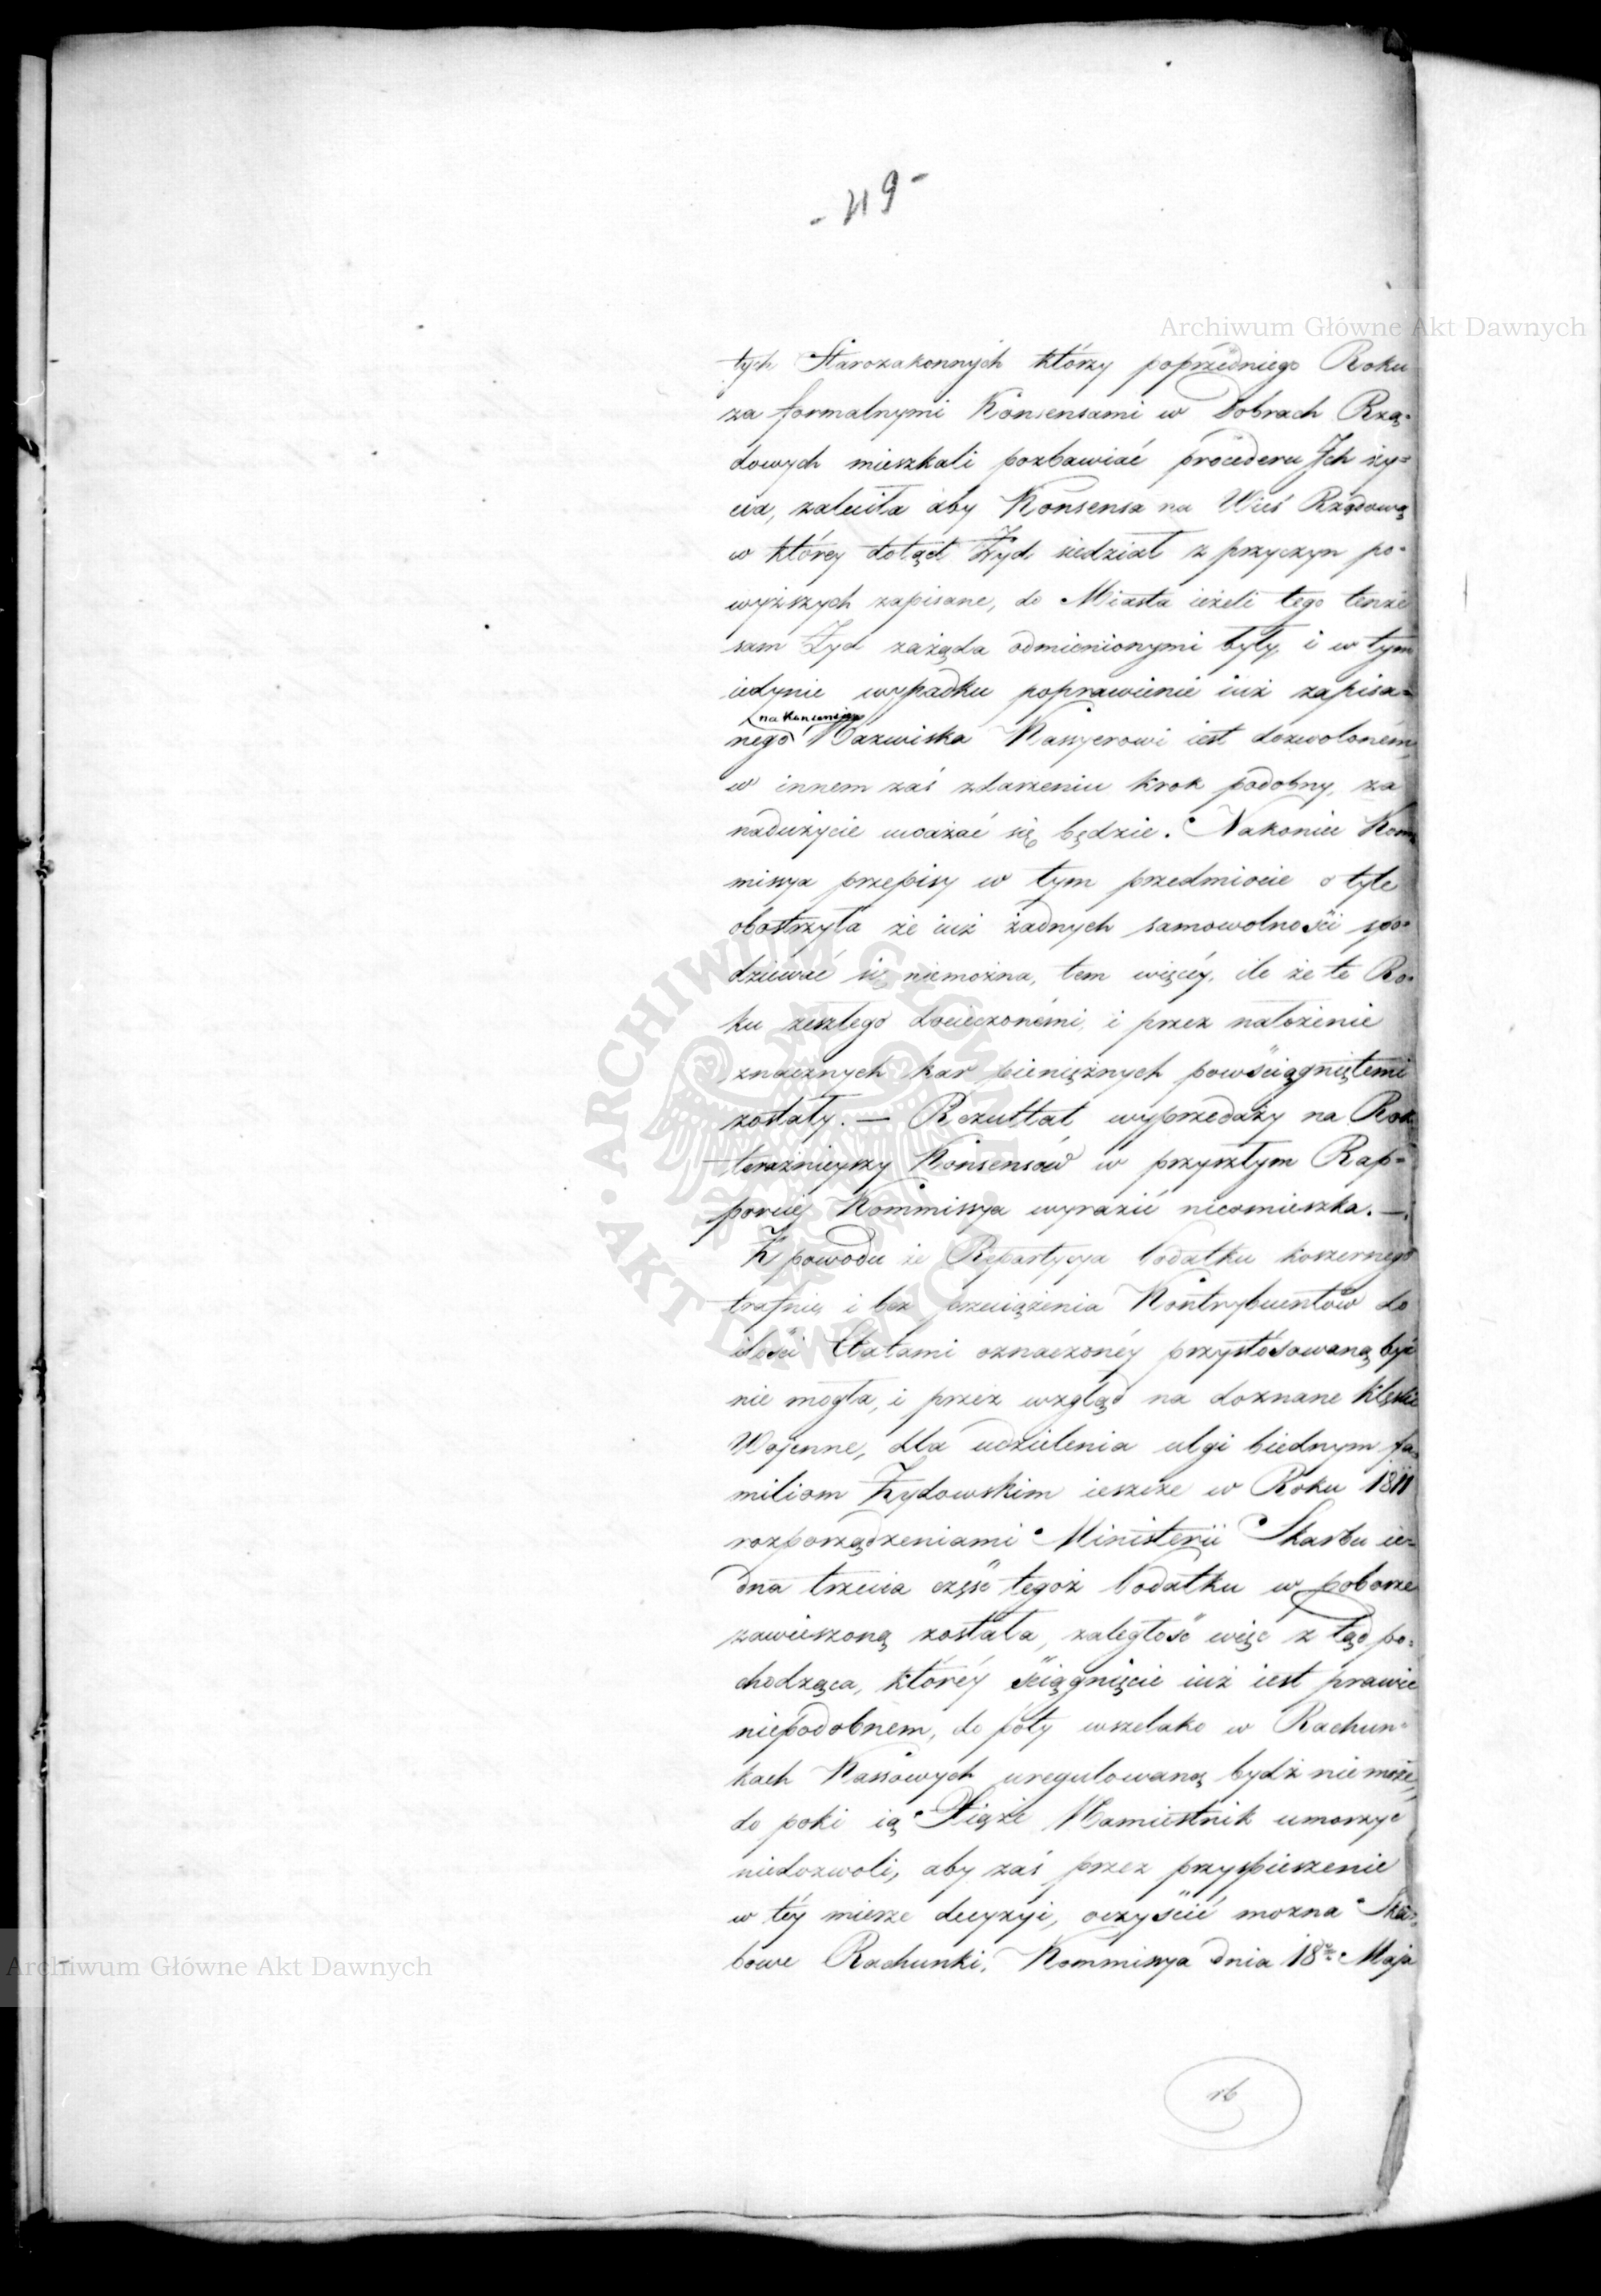 - 119 -
Archiwum Główne Akt Dawnych
tych Starozakonnych którzy poprzedniego Roku
za formalnymi Konsensami w Dobrach Rzą-
dowych mieszkali pozbawiać procederu Ich ży-
cia, zaleciła aby Konsensa na Wieś Rządową
w którey dotąd Żyd siedział z przyczyn po-
wyższych zapisane, do Miasta ieżeli tego tenże
sam Żyd zażąda odmienionymi były, i w tym
iedynie wypadku poprawienie iuż zapisa-
na Konsensie
nego Nazwiska Kassyerowi iest dozwolonem,
w innem zaś zdarzeniu krok podobny, za
nadużycie uważać się będzie. Nakoniec Kom
missya przepisy w tym przedmiocie o tyle
obostrzyła że iuż żadnych samowolności spo-
dziewać się niemożna, tem więcéy, ile że te Ro-
ku zeszłego docieczonemi, i przez nałożenie
znacznych kar pieniężnych powściągniętemi
zostały. — Rezultat wyprzedaży na Rok
teraźnieyszy Konsensów w przyszłym Rap-
porcie Kommissya wyrazić nieomieszka. —
Z powodu że Repartycya Podatku koszernego
trafnie i bez przeciążenia Kontrybuentów do
ilości Etatami oznaczonéy przystósowaną być
nie mogła, i przez wzgląd na doznane klęski
Wojenne, dla udzielenia ulgi biednym fa-
miliom Żydowskim ieszcze w Roku 1811
rozporządzeniami Ministerii Skarbu ie-
dna trzecia część tegoż Podatku w poborze
zawieszoną została, zaległość więc z tąd po-
chodząca, któréy ściągnięcie iuż iest prawie
niepodobnem, do póty wszelako w Rachun-
kach Kassowych uregulowaną bydź niemoże,
do poki ią Xiąże Namiestnik umorzyć
niedozwoli, aby zaś przez przyspieszenie
w téy mierze decyzyi, oczyścić można Skar-
bowe Rachunki, Kommissya dnia 18go Maja
Archiwum Główne Akt Dawnych
16
ARCHIWUM GŁÓWNE AKT DAWNYCH